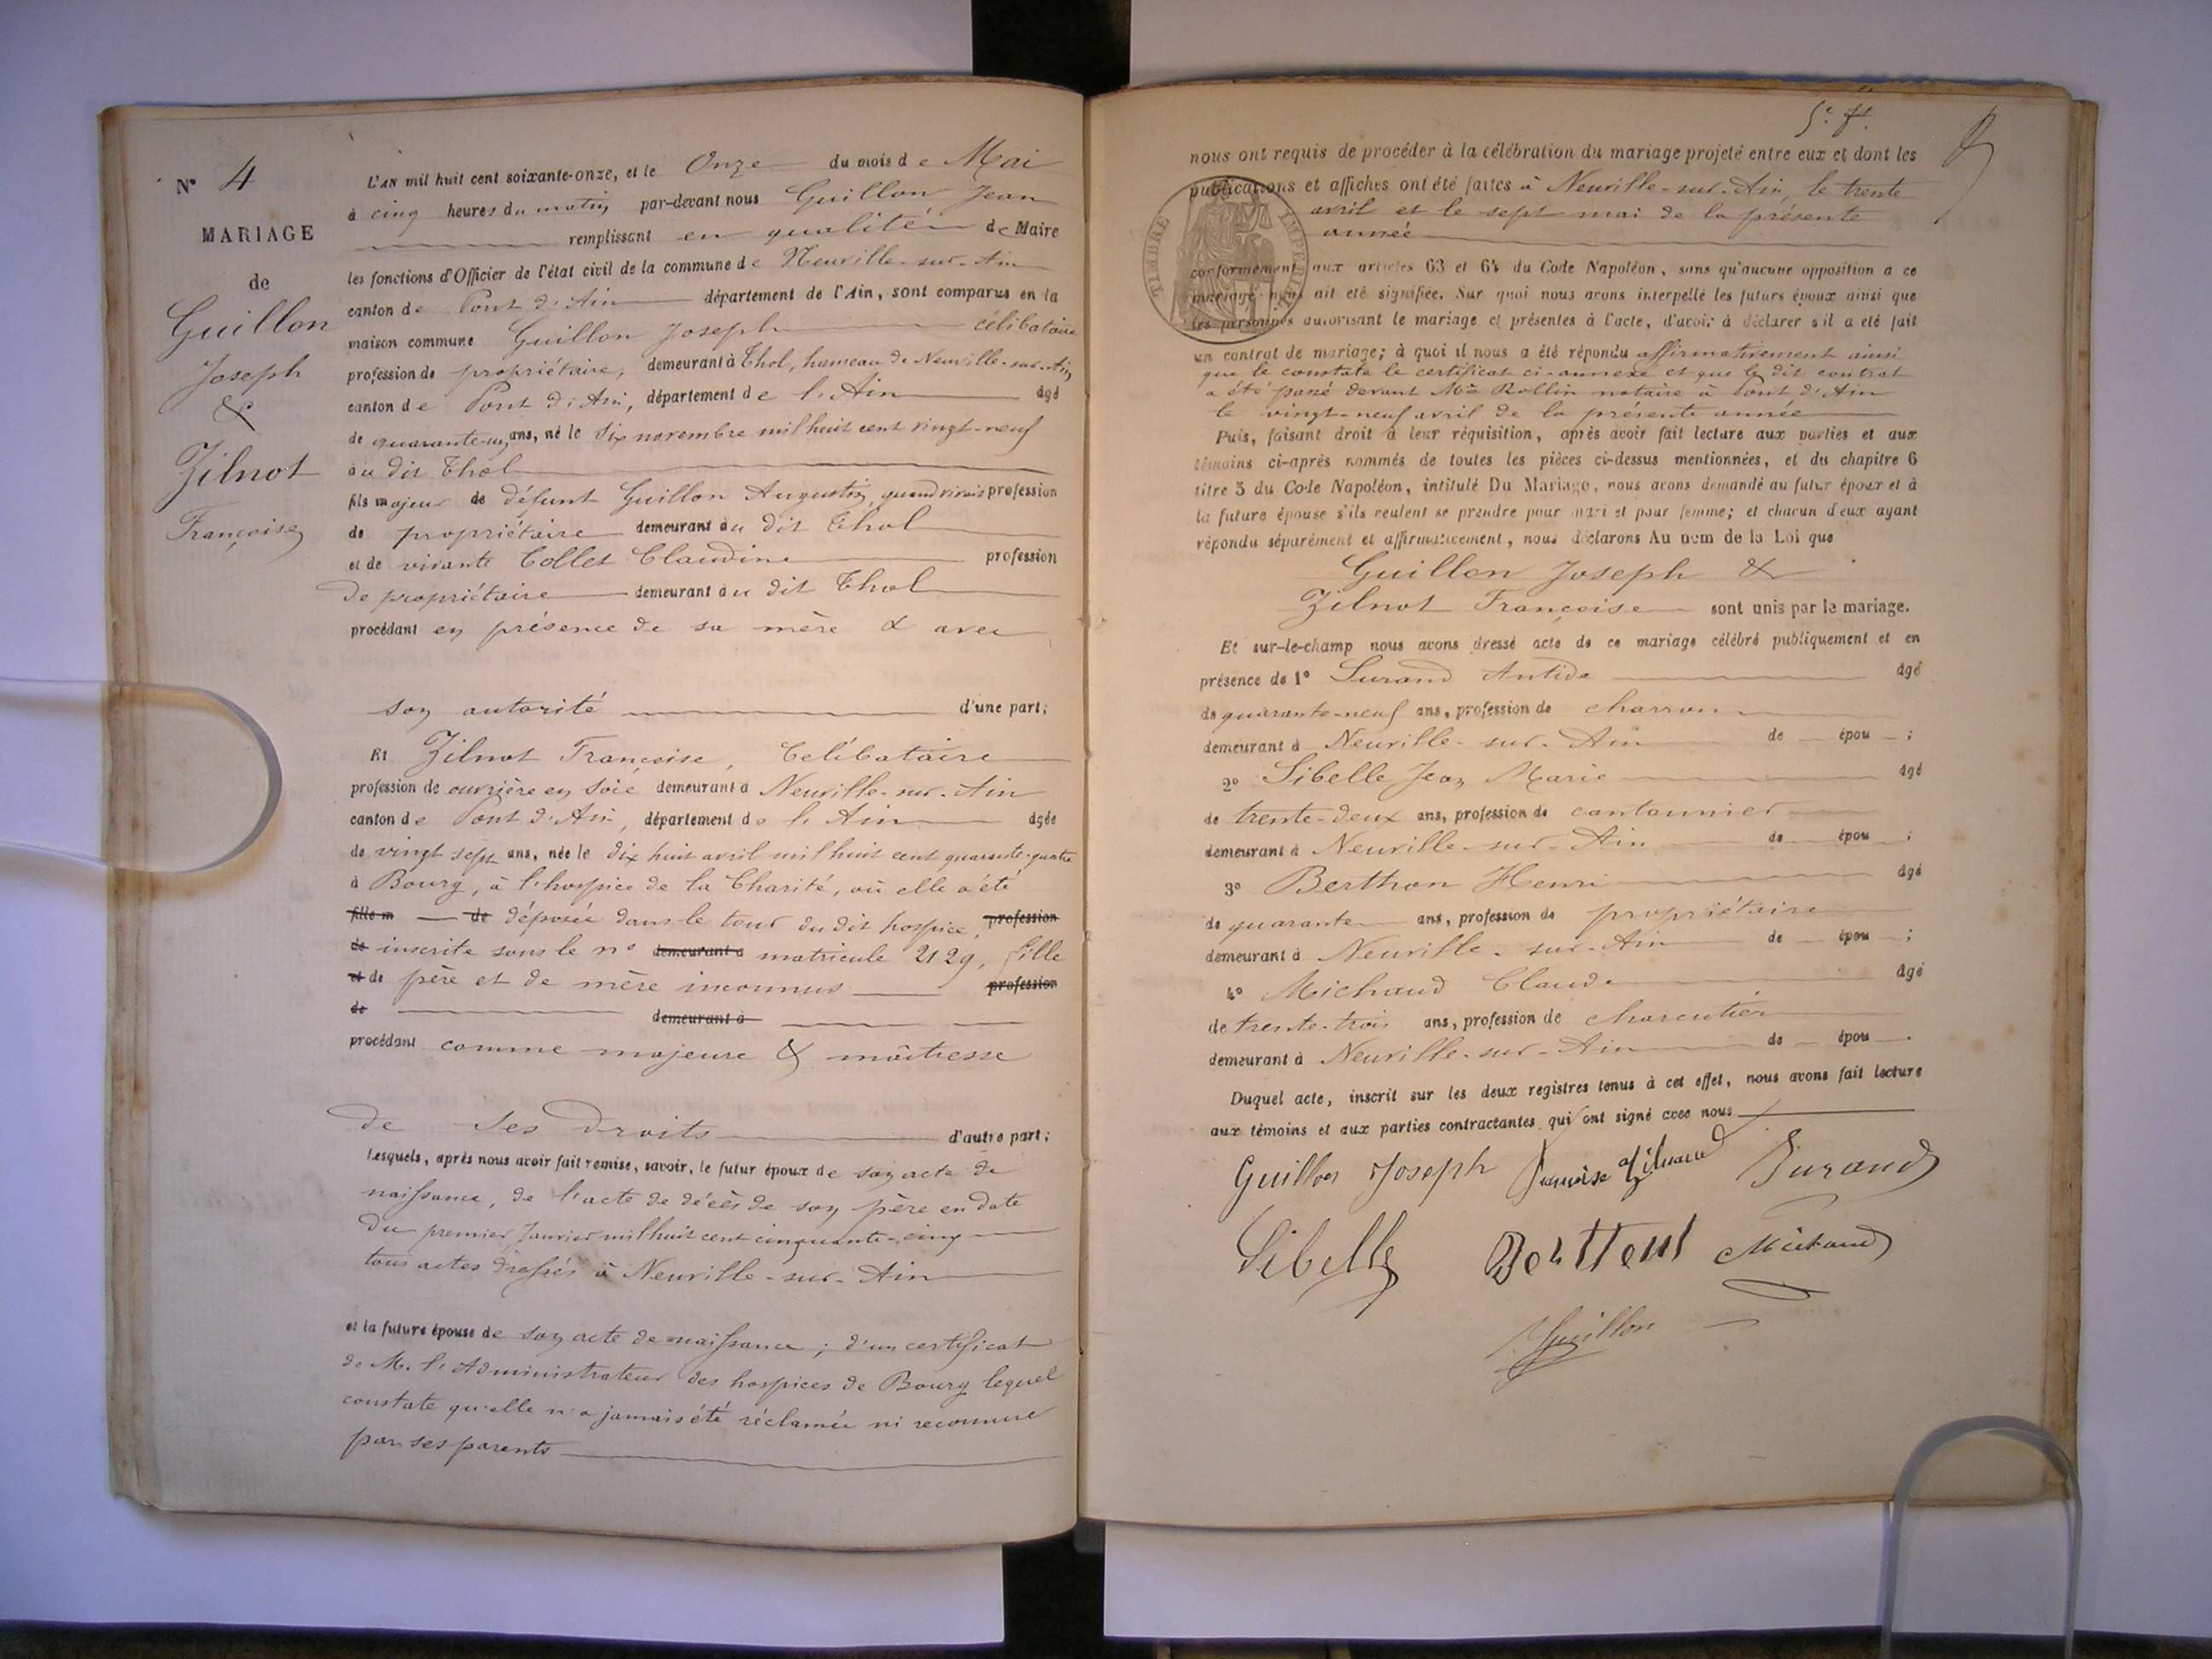 N° 4
MARIAGE
de
Guillon
Joseph
&
Zilnot
Françoise
L'AN mil huit cent soixante-onze, et le Onze du mois de Mai
à cinq heures du matin par-devant nous Guillon Jean
remplissant en qualité de Maire
les fonctions d'Officier de l'état civil de la commune de Neuville-sur-Ain
canton de Pont d'Ain département de l'Ain, sont comparus en la
maison commune Guillon Joseph célibataire
profession de propriétaire, demeurant à Thol, hameau de Neuville-sur-Ain
canton de Pont d'Ain, département de l'Ain âgé
de quarante-un ans, né le dix novembre mil huit cent vingt-neuf
au dit Thol
fils majeur de défunt Guillon Augustin, quand vivait profession
de propriétaire demeurant au dit Thol
et de vivante Collet Claudine profession
de propriétaire demeurant au dit Thol
procédant en présence de sa mère & avec
son autorité d'une part;
Et Zilnot Françoise, Célibataire
profession de ouvrière en soie demeurant à Neuville-sur-Ain
canton de Pont d'Ain, département de l'Ain âgée
de vingt sept ans, née le dix huit avril mil huit cent quarante-quatre
à Bourg, à l'hospice de la Charité, où elle a été
fille m de déposée dans le tour du dit hospice, profession
de inscrite sous le n° demeurant à matricule 2129, fille
et de père et de mère inconnus profession
de demeurant à
procédant comme majeure & maîtresse
de ses droits d'autre part;
Lesquels, après nous avoir fait remise, savoir, le futur époux de son acte de
naissance, de l'acte de décès de son père en date
du premier Janvier mil huit cent cinquante-cinq
tous actes dressés à Neuville-sur-Ain
et la future épouse de son acte de naissance; d'un certificat
de M. l'Administrateur des hospices de Bourg lequel
constate qu'elle n'a jamais été réclamée ni reconnue
par ses parents
5e f.
nous ont requis de procéder à la célébration du mariage projeté entre eux et dont les
publications et affiches ont été faites à Neuville-sur-Ain, le trente
avril et le sept mai de la présente
année
TIMBRE IMPERIAL
conformément aux articles 63 et 64 du Code Napoléon, sans qu'aucune opposition à ce
mariage nous ait été signifiée. Sur quoi nous avons interpellé les futurs époux ainsi que
les personnes autorisant le mariage et présentes à l'acte, d'avoir à déclarer s'il a été fait
un contrat de mariage; à quoi il nous a été répondu affirmativement ainsi
que le constate le certificat ci-annexé et que le dit contrat
a été passé devant Me Rollin notaire à Pont d'Ain
le vingt-neuf avril de la présente année
Puis, faisant droit à leur réquisition, après avoir fait lecture aux parties et aux
témoins ci-après nommés de toutes les pièces ci-dessus mentionnées, et du chapitre 6
titre 5 du Code Napoléon, intitulé Du Mariage, nous avons demandé au futur époux et à
la future épouse s'ils veulent se prendre pour mari et pour femme; et chacun d'eux ayant
répondu séparément et affirmativement, nous déclarons Au nom de la Loi que
Guillon Joseph &
Zilnot Françoise sont unis par le mariage.
Et sur-le-champ nous avons dressé acte de ce mariage célébré publiquement et en
présence de 1° Surand Antide âgé
de quarante-neuf ans, profession de charron
demeurant à Neuville-sur-Ain de épou ;
2° Sibelle Jean Marie âgé
de trente-deux ans, profession de cantonnier
demeurant à Neuville-sur-Ain de épou ;
3° Berthon Henri âgé
de quarante ans, profession de propriétaire
demeurant à Neuville-sur-Ain de épou ;
4° Michaud Claude âgé
de trente-trois ans, profession de charcutier
demeurant à Neuville-sur-Ain de épou .
Duquel acte, inscrit sur les deux registres tenus à cet effet, nous avons fait lecture
aux témoins et aux parties contractantes qui ont signé avec nous
Guillon Joseph Surand
Sibelle Michaud
Guillon